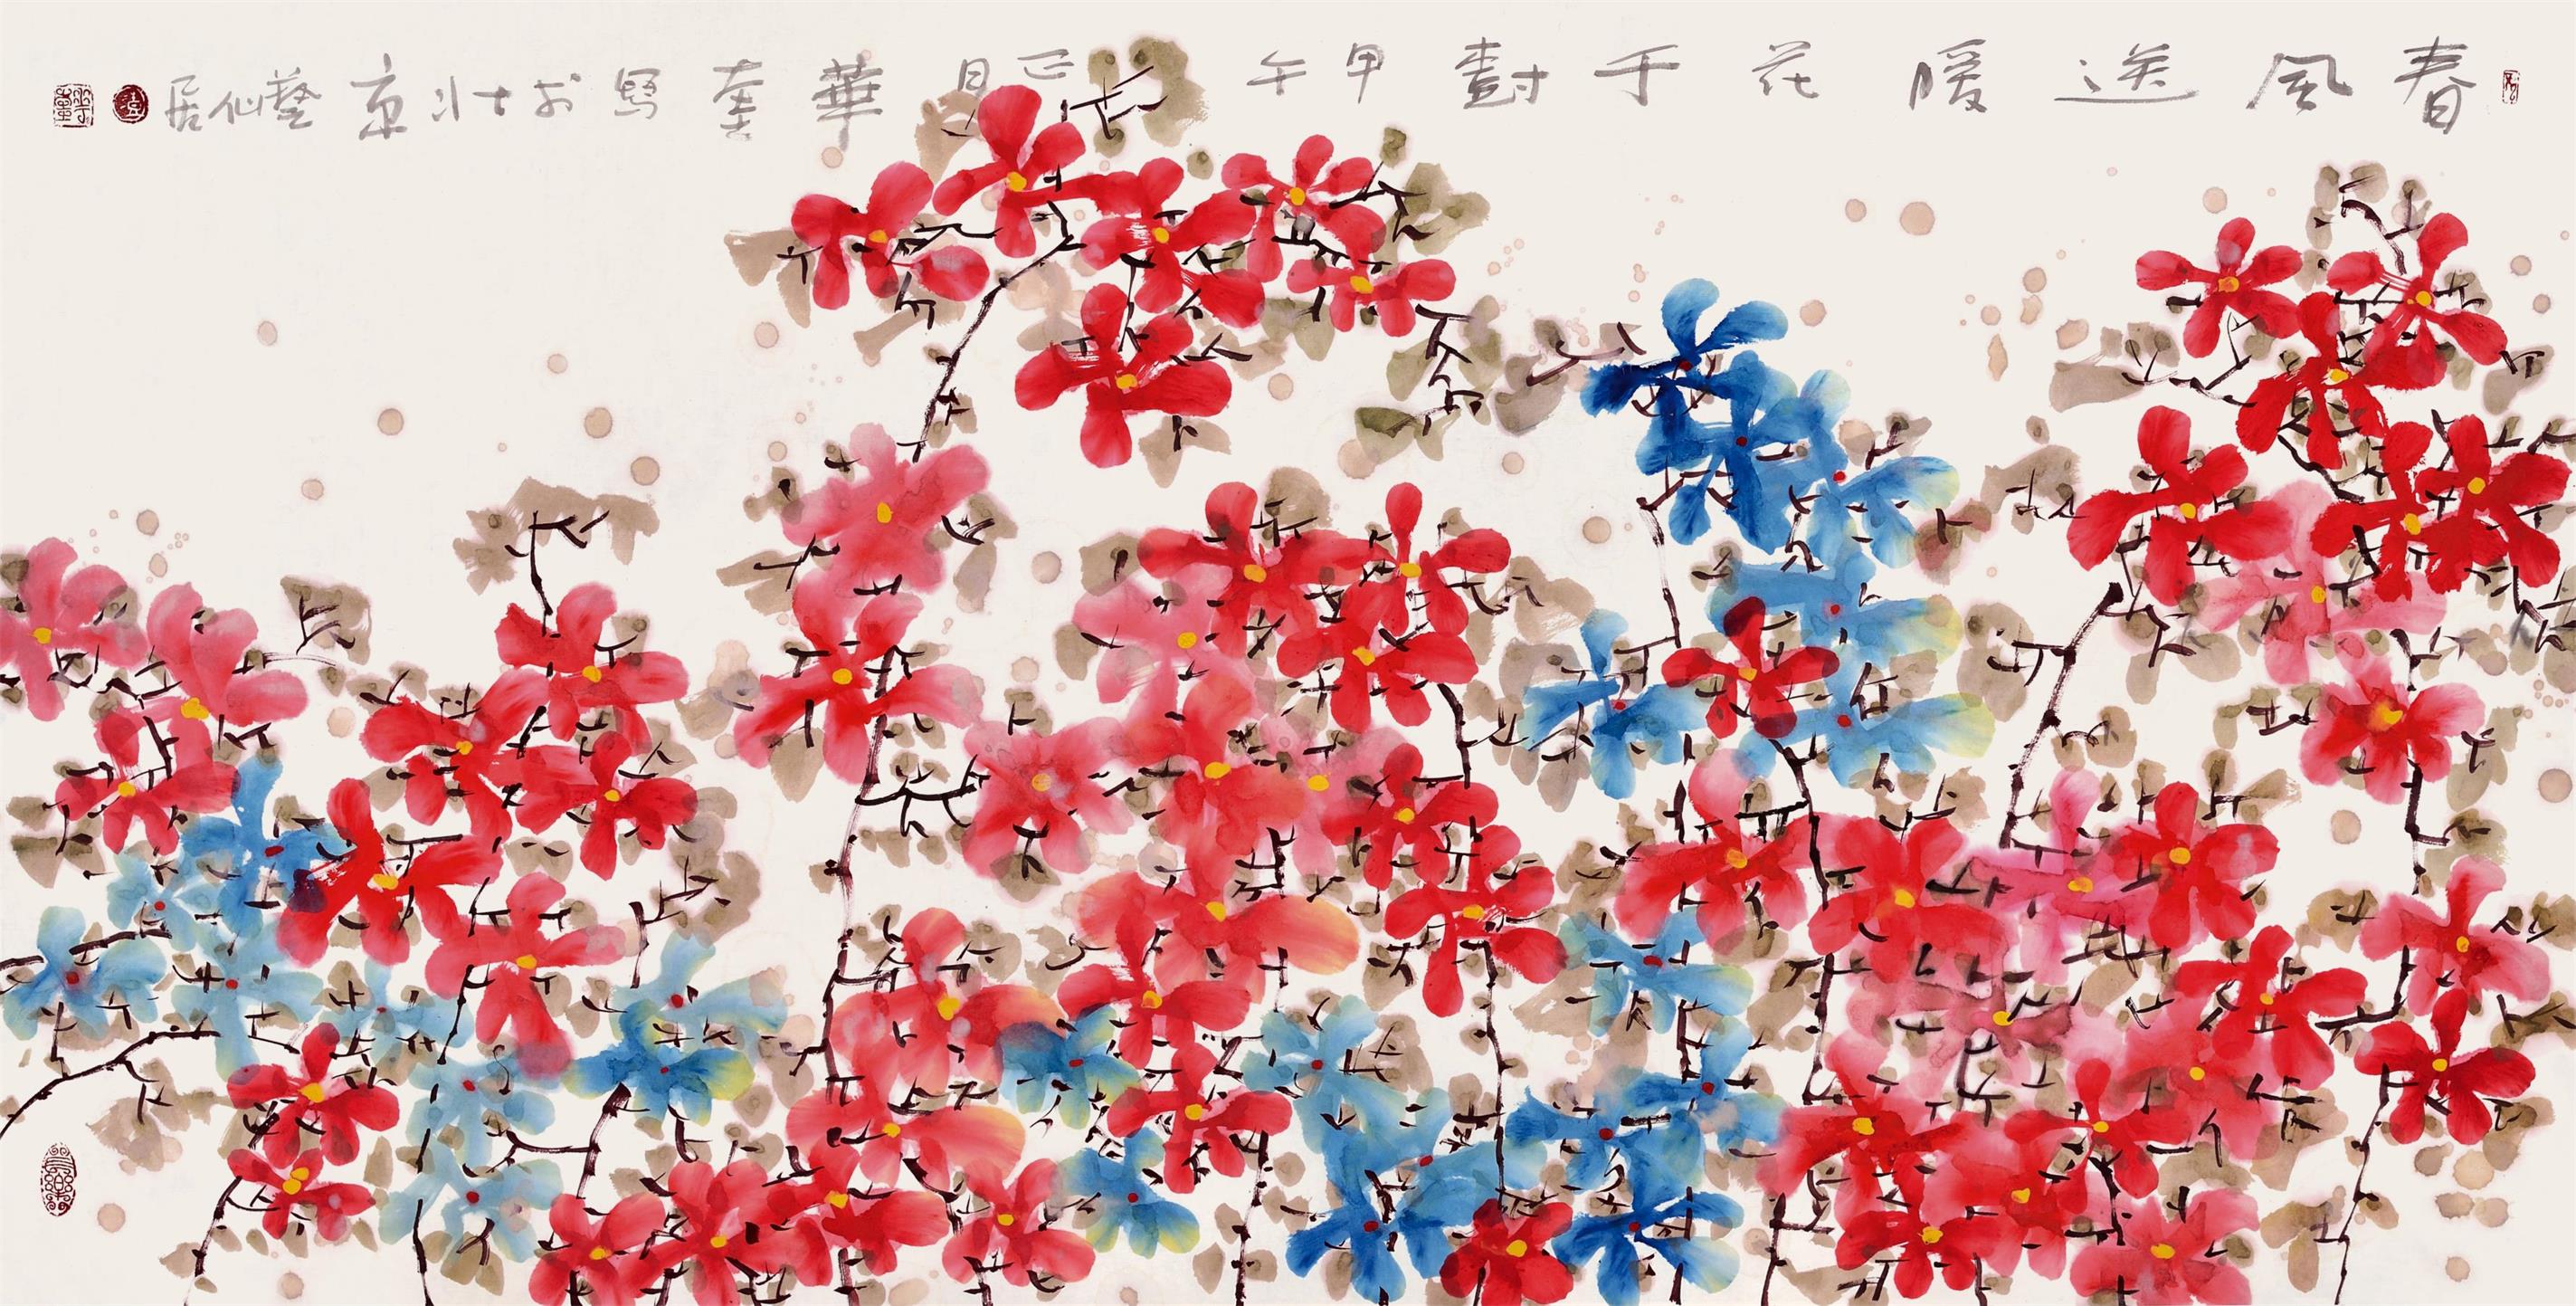 春風送暖花千樹甲午正月華奎寫於北京藝仙居